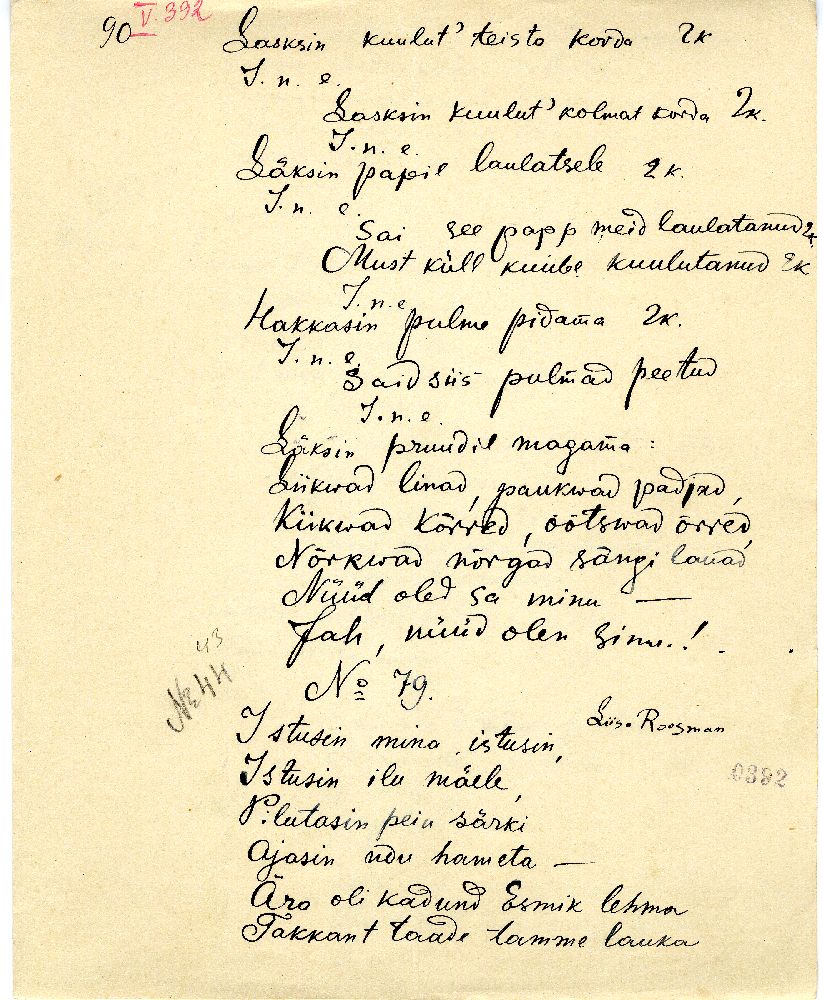 90 V. 392
Lasksin kuulut' teista korda 2k
I. n. e.
Lasksin kuulut' kolmat korda 2k.
I. n. e.
Läksin papil laulatsele 2k.
I. n. e.
Sai see papp meid laulatanud 2k
Must küll kuube kuulutanud 2k
I. n. e
Hakkasin pulme pidama 2k.
I. n. e.
Said siis pulmad peetud
I. n. e.
Läksin pruudil magama:
Liikwad linad, paukwad padjad,
Kiikwad kõrred, õõtswad õrred,
Nõrkwad nõrgad sängi lauad
Nüüd oled sa minu —
Jah, nüüd olen sinu..!
43
№ 44
No 79.
Liiso Roosman
Istusin mina, istusin,
Istusin ilu mäele,
0392
Pilutasin peiu särki
Ajasin udu hameta —
Äro oli kadund Esmik lehma
Takkant taade tamme lauka